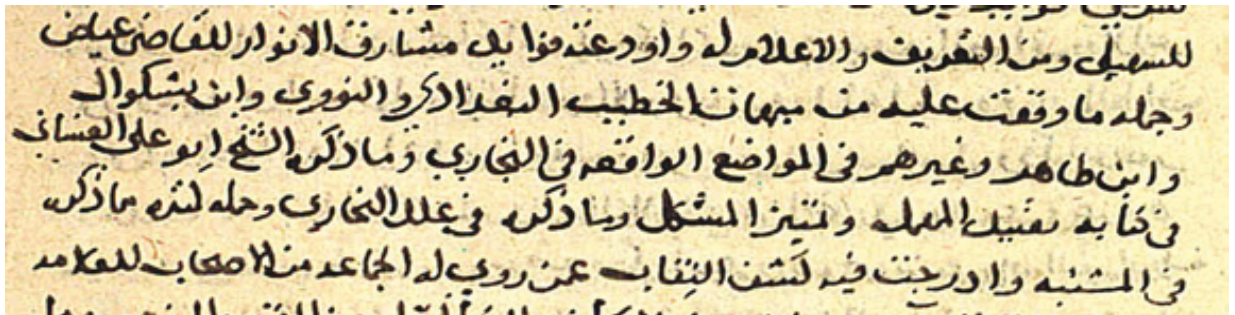 للسهيلي ومن التعريف والاعلام له واودعته فوايد مشارق الانوار للقاضي عياض
وجمله ما وقفت عليه من مبهمات الخطيب البغدادي والنووي وابن بشكوال
وابن طاهر وغيرهم في المواضع الواقعه في البخاري وما ذكره الشيخ ابو علي الغساني
في كتابه تقييد المهمل وتمييز المشكل وما ذكره في علل البخاري وجمله مما ذكره
في المشتبه وادرجت فيه كشف النقاب عمن روي له الجماعه من الاصحاب للعلامه